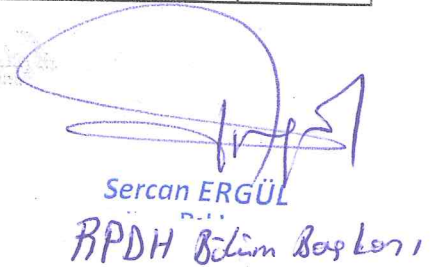 Sercan ERGÜL
RPDH Bölüm Başkanı